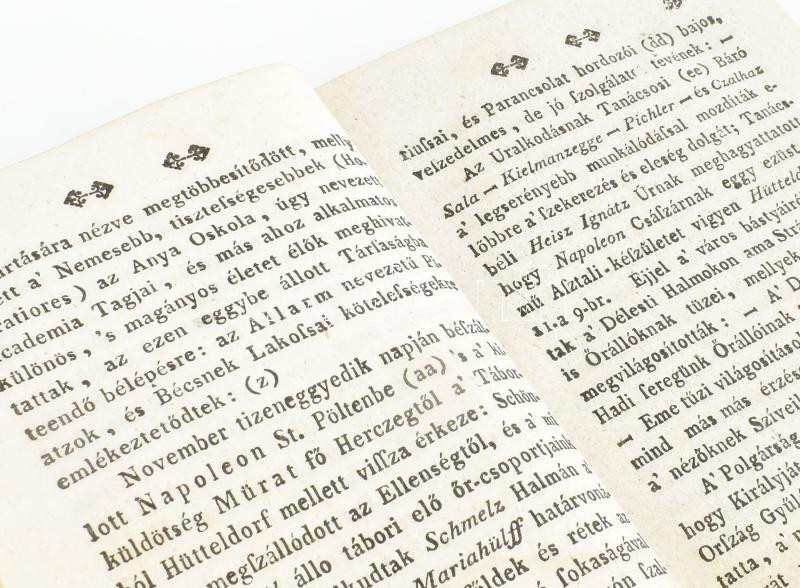 nézve megtöbbesítődött, melly
a' Nemesebb, tisztefségesebbek
az Anya Oskola, úgy nevezett
Tagjai, és más ahoz alkalmatos
különös, 's magányos életet élők meghivat-
tattak, az ezen eggybe állott Társaságba
teendő bélépésre: az Allarm nevezetű
atzok, és Bécsnek Lakofsai kötelefségekre
emlékeztetődtek: (z)
November tizeneggyedik napján béfzál-
lott Napoleon St. Pöltenbe (aa) 's a'
küldötség Mürat fő Herczegtől a' Tábor-
Hütteldorf mellett vifsza érkeze: Schön-
megfzállódott az Ellenségtől, és a'
állo tábori elő őr-csoportjaink
Schmelz Halmán
Mariahülff határvonás
és rétek az
sokaságával
riufsai, és Parancsolat hordozói (dd) bajos,
vefzedelmes, de jó fzolgálatot tevének: —
Az Uralkodásnak Tanácsosi (ee) Báró
Sala — Kielmanzegge — Pichler — és Czalhaz
a' legserényebb munkálódáfsal mozdíták e-
lőbbre a' fzekerezés és eleség dolgát; Tanács-
béli Heisz Ignátz Úrnak meghagyattatott
hogy Napoleon Csáfzárnak eggy ezüst
mű Afztali-kéfzületet vigyen
11.a 9-br. Éjjel a' város bástyáiról
tak a' Délesti Halmokon ama
is Őrállóknak tüzei, mellyek
megvilágosították: — A'
Hadi seregünk Őrállóinak
— Eme tüzi világosítások
mind más más érzés
a' nézőknek Szíveik
A' Polgárság
hogy Királyján
Orfzág